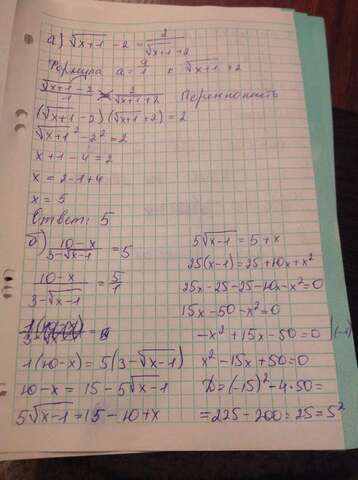 а) √x+1 - 2 = 2/√x+1+2
Формула a = a/1 √x+1 + 2
√x+1-2/1 2/√x+1+2 Перемножить
(√x+1-2)(√x+1+2)=2
√x+1² - 2² = 2
x+1-4=2
x=2-1+4
x=5
Ответ: 5
б) 10-x/3-√x-1 = 5
10-x/3-√x-1 = 5/1
1(10-x)=5(3-√x-1)
10-x=15-5√x-1
5√x-1=15-10+x
5√x-1=5+x
25(x-1)=25+10x+x²
25x-25-25-10x-x²=0
15x-50-x²=0
-x²+15x-50=0 |(-1)
x²-15x+50=0
D=(-15)²-4·50=
=225-200=25=5²